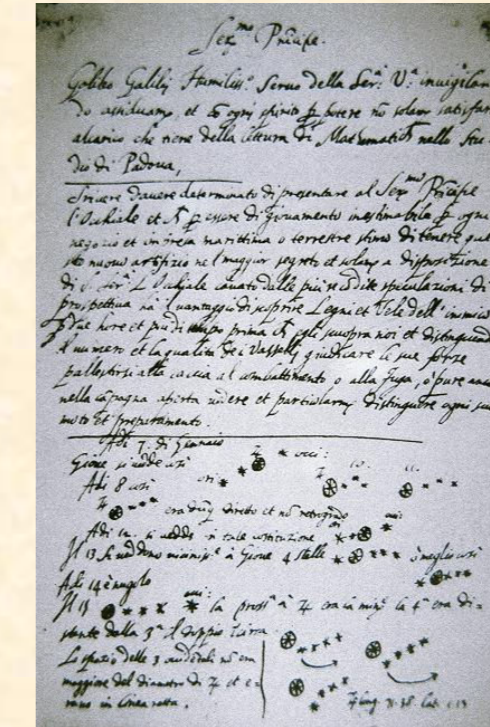 Ser.mo Principe.
Galileo Galilej Humiliss.o Servo della Ser.a V.a invigilan
do assiduam.e, et co ogni spirito p potere nõ solam satisfar
al carico che tiene della lettura di Mathematich nello Stu
dio di Padova,
Scrivere davere determinato di presentare al Ser.mo Principe
l'Occhiale et p essere di giovamento inestimabile p ogni
negozio et impresa marittima o terrestre stimo di tenere que
sto nuovo artifizio ne l maggior segreto et solam a disposizione
di S. Ser.a L Occhiale cavato dalle più recondite speculazioni di
prospettiva ha l vantaggio di scoprire Legni et Vele dell' inimico
p due hore et più di tempo prima ch egli scuopra noi et distinguendo
il numero et la qualità de i Vasselli giudicare le sue forze
pallestirsi alla caccia al combattimento o alla fuga, o pure anco
nella capagna aperta vedere et particularm distinguere ogni suo
moto et preparamento.
Adi 7. di Gennaio
Giove si vedde così
Adi 8 così
era duq diretto et nõ retrogrado
Adi 12. si vedde in tale costituzione
Il 13 si veddono à Giove 4 stelle meglio così
Adi 14 è nugolo
Il 15 la pross.a à ♃ era la 4.a era di=
stante dalla 3.a il doppio
Lo spazio delle 3 nõ era
maggiore del diametro di ♃ et e=
rano in linea retta.
♃ long. 71.38 Lat. 1.13